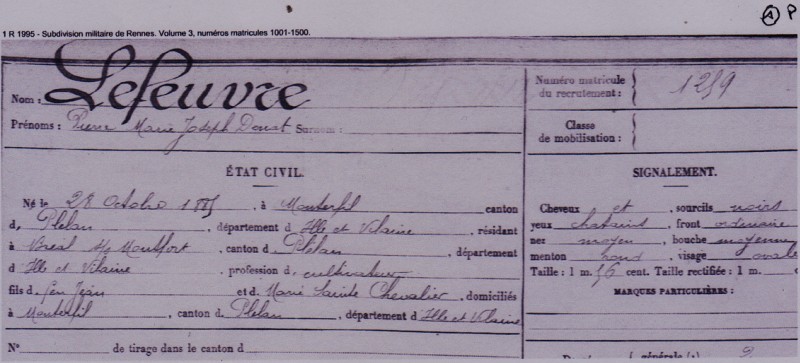 A P
1 R 1995 - Subdivision militaire de Rennes. Volume 3, numéros matricules 1001-1500.
Nom : Lefeuvre
Prénoms : Pierre Marie Joseph Donat Surnom :
Numéro matricule du recrutement : 1259
Classe de mobilisation :
ÉTAT CIVIL.
Né le 28 Octobre, à Monterfil, canton
d, Plélan, département d'Ille et Vilaine, résidant
à Bréal s/s Montfort, canton d, Plélan, département
d Ille et Vilaine, profession d, cultivateur
fils d feu Jean et d, Marie Sainte Chevalier, domiciliés
à Monterfil, canton d, Plélan, département d'Ille et Vilaine
N° de tirage dans le canton d
SIGNALEMENT.
Cheveux et, sourcils noirs
yeux chatains, front ordinaire
nez moyen, bouche moyenne
menton rond, visage ovale
Taille : 1 m. 56 cent. Taille rectifiée : 1 m.
MARQUES PARTICULIÈRES :